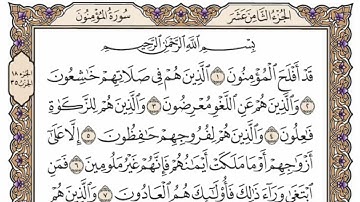 سُورَةُ المُؤْمِنُونَ
الجُزْءُ الثَّامِنَ عَشَرَ
بِسْمِ اللَّهِ الرَّحْمَٰنِ الرَّحِيمِ
قَدْ أَفْلَحَ الْمُؤْمِنُونَ ١ الَّذِينَ هُمْ فِي صَلَاتِهِمْ خَاشِعُونَ
٢ وَالَّذِينَ هُمْ عَنِ اللَّغْوِ مُعْرِضُونَ ٣ وَالَّذِينَ هُمْ لِلزَّكَوٰةِ
فَاعِلُونَ ٤ وَالَّذِينَ هُمْ لِفُرُوجِهِمْ حَافِظُونَ ٥ إِلَّا عَلَىٰ
أَزْوَاجِهِمْ أَوْ مَا مَلَكَتْ أَيْمَانُهُمْ فَإِنَّهُمْ غَيْرُ مَلُومِينَ ٦ فَمَنِ
ابْتَغَىٰ وَرَاءَ ذَٰلِكَ فَأُولَٰئِكَ هُمُ الْعَادُونَ ٧ وَالَّذِينَ هُمْ